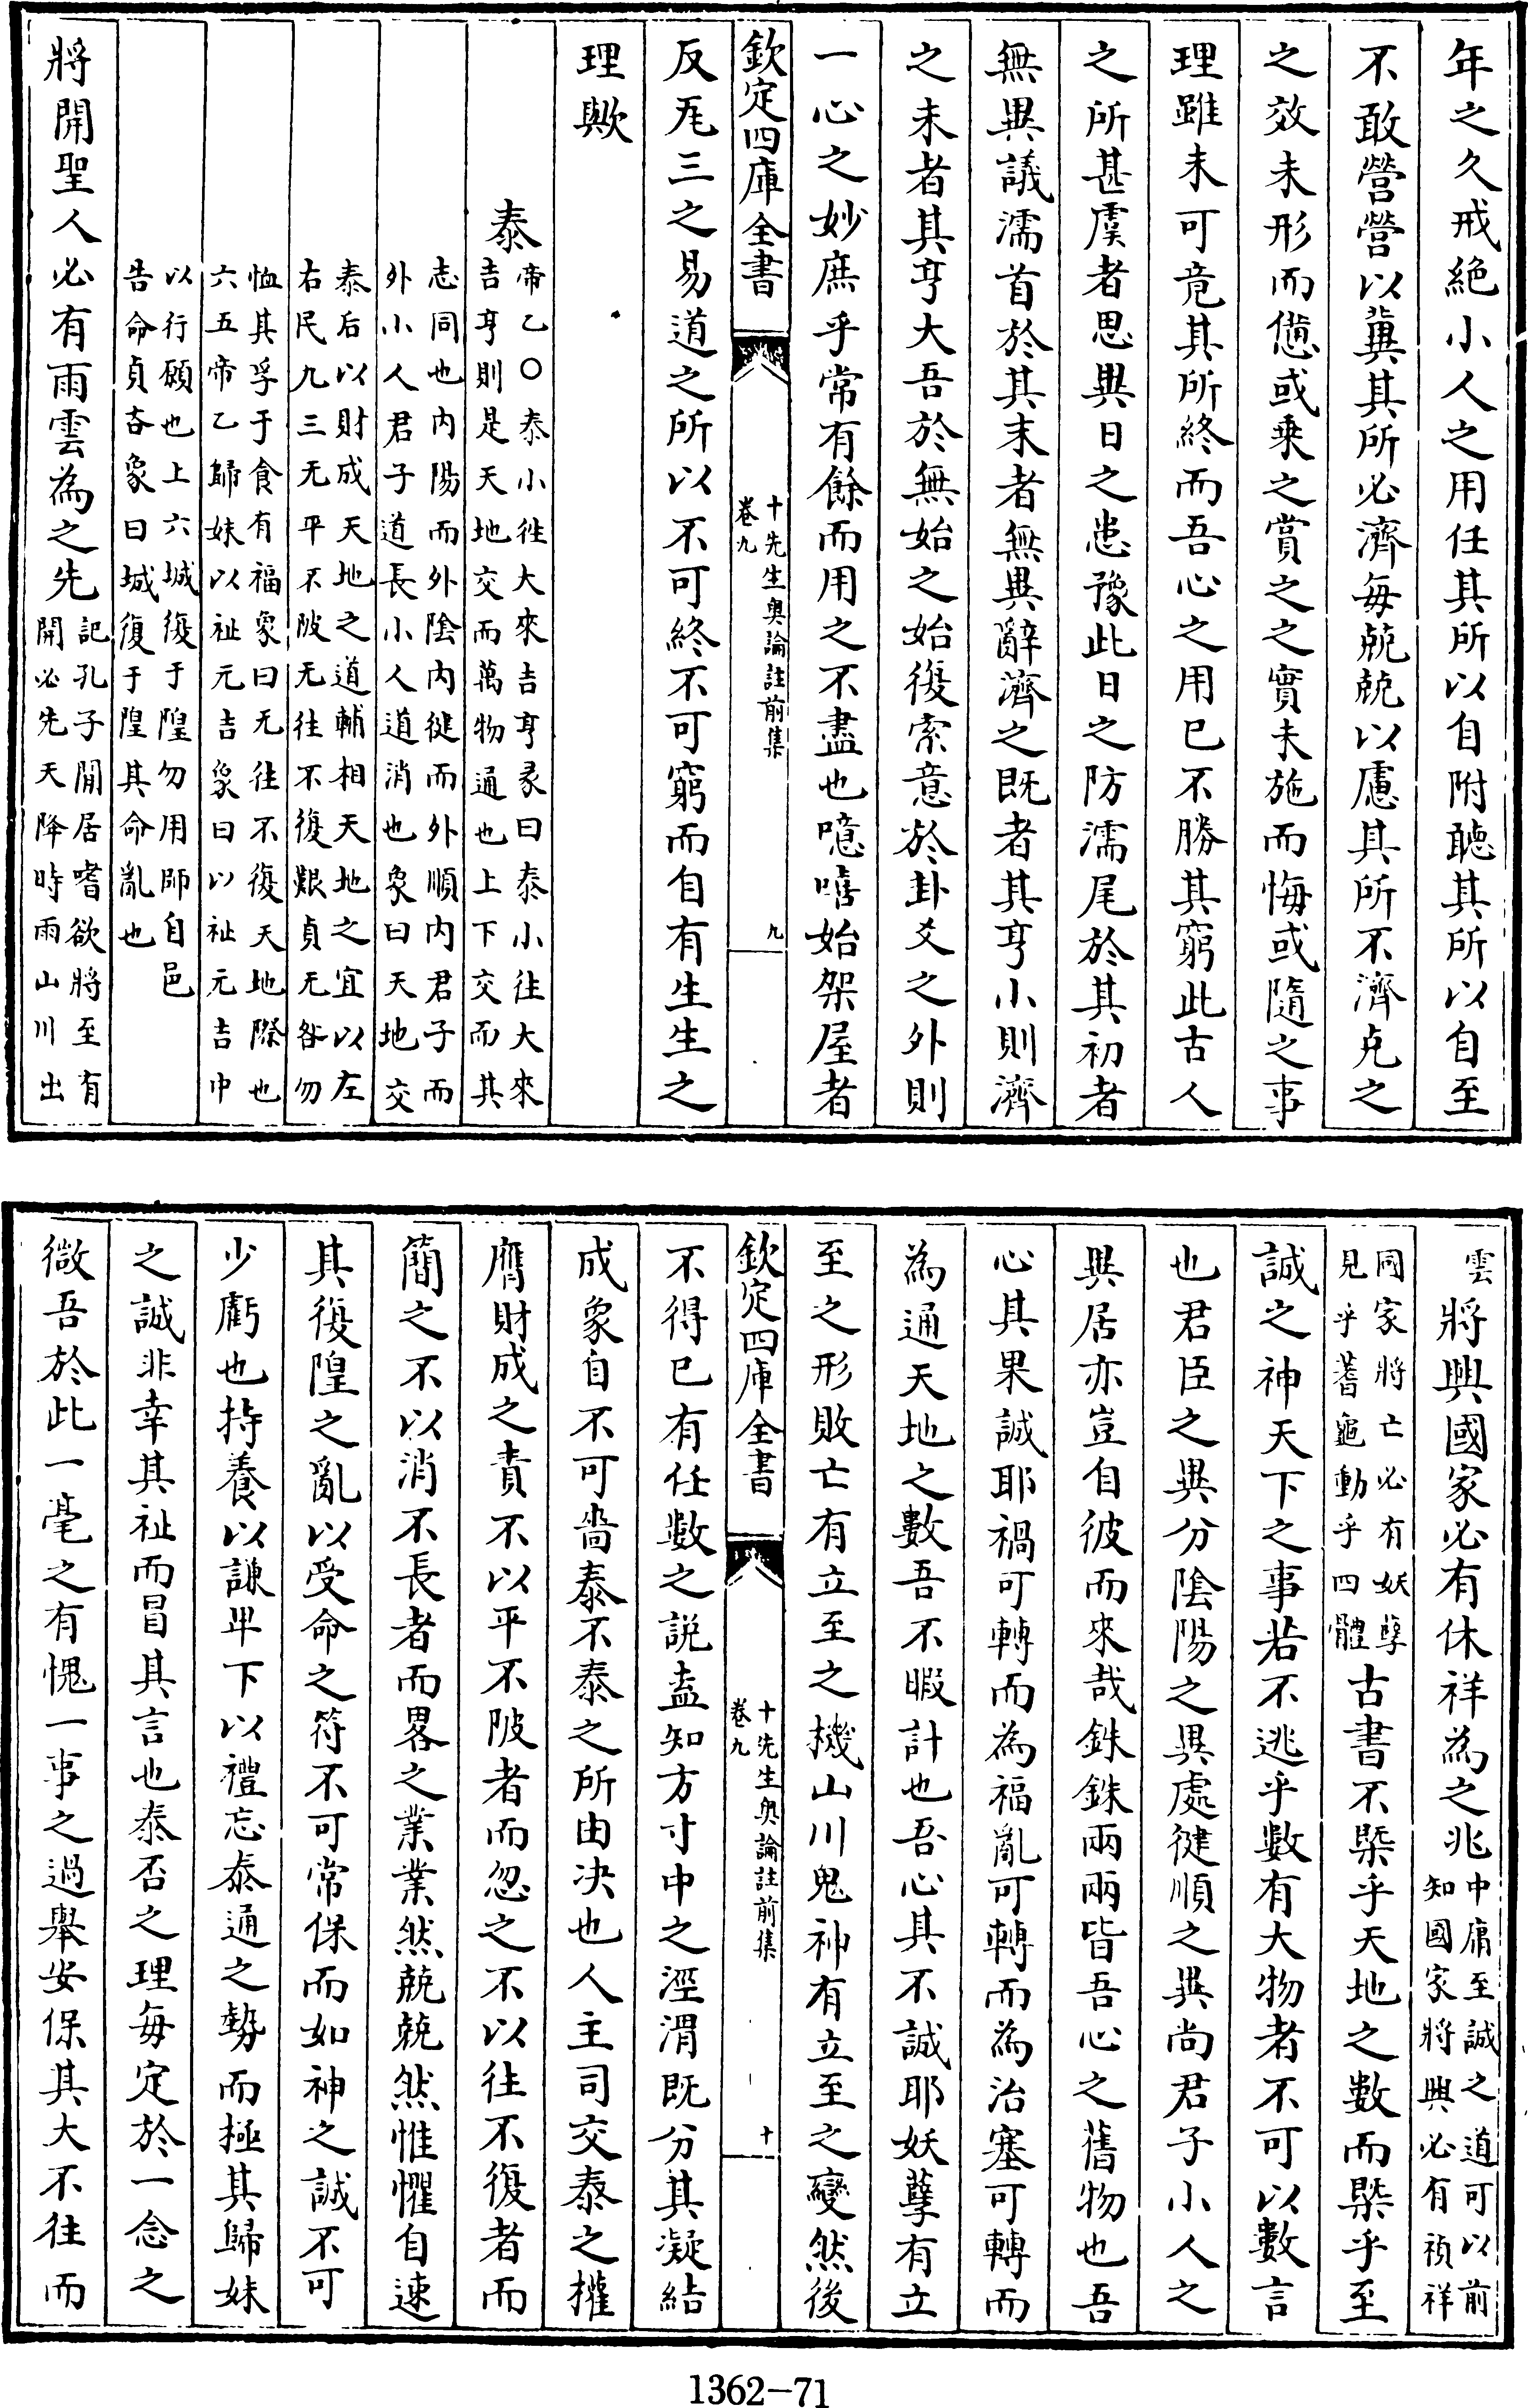 年之久戒絶小人之用任其所以自附聽其所以自至
不敢營營以冀其所必濟每兢兢以慮其所不濟克之
之效未形而憊或乗之賞之之實未施而悔或隨之事
理雖未可竟其所終而吾心之用已不勝其窮此古人
之所甚虞者思異日之患豫此日之防濡尾於其初者
無異議濡首於其末者無異辭濟之既者其亨小則濟
之未者其亨大吾於無始之始復索意於卦爻之外則
一心之妙庶乎常有餘而用之不盡也噫嘻始架屋者
欽定四庫全書
十先生奥論註前集
卷九
九
反旡三之易道之所以不可終不可窮而自有生生之
理歟
泰
帝乙○泰小徃大來吉亨彖曰泰小往大來
吉亨則是天地交而萬物通也上下交而其
志同也内陽而外陰内健而外順内君子而
外小人君子道長小人道消也象曰天地交
泰后以財成天地之道輔相天地之宜以左
右民九三无平不陂无往不復艱貞无咎勿
恤其孚于食有福象曰无往不復天地際也
六五帝乙歸妹以祉元吉象曰以祉元吉中
以行願也上六城復于隍勿用師自邑
告命貞吝象曰城復于隍其命亂也
將開聖人必有雨雲為之先
記孔子閒居嗜欲將至有
開必先天降時雨山川出
雲
將興國家必有休祥為之兆
中庸至誠之道可以前
知國家將興必有禎祥
同家將亡必有妖孽
見乎蓍龜動乎四體
古書不槩乎天地之數而槩乎至
誠之神天下之事若不逃乎數有大物者不可以數言
也君臣之異分陰陽之異處健順之異尚君子小人之
異居亦豈自彼而來哉銖銖兩兩皆吾心之舊物也吾
心其果誠耶禍可轉而為福亂可轉而為治塞可轉而
為通天地之數吾不暇計也吾心其不誠耶妖孽有立
至之形敗亡有立至之機山川鬼神有立至之變然後
欽定四庫全書
十先生奥論註前集
卷九
十
不得已有任數之説盍知方寸中之涇渭既分其凝結
成象自不可啚泰不泰之所由决也人主司交泰之權
膺財成之責不以平不陂者而忽之不以往不復者而
簡之不以消不長者而畧之業業然兢兢然惟懼自速
其復隍之亂以受命之符不可常保而如神之誠不可
少虧也持養以謙卑下以禮忘泰通之勢而極其歸妹
之誠非幸其祉而冒其言也泰否之理每定於一念之
微吾於此一毫之有愧一事之過舉安保其大不往而
1362-71